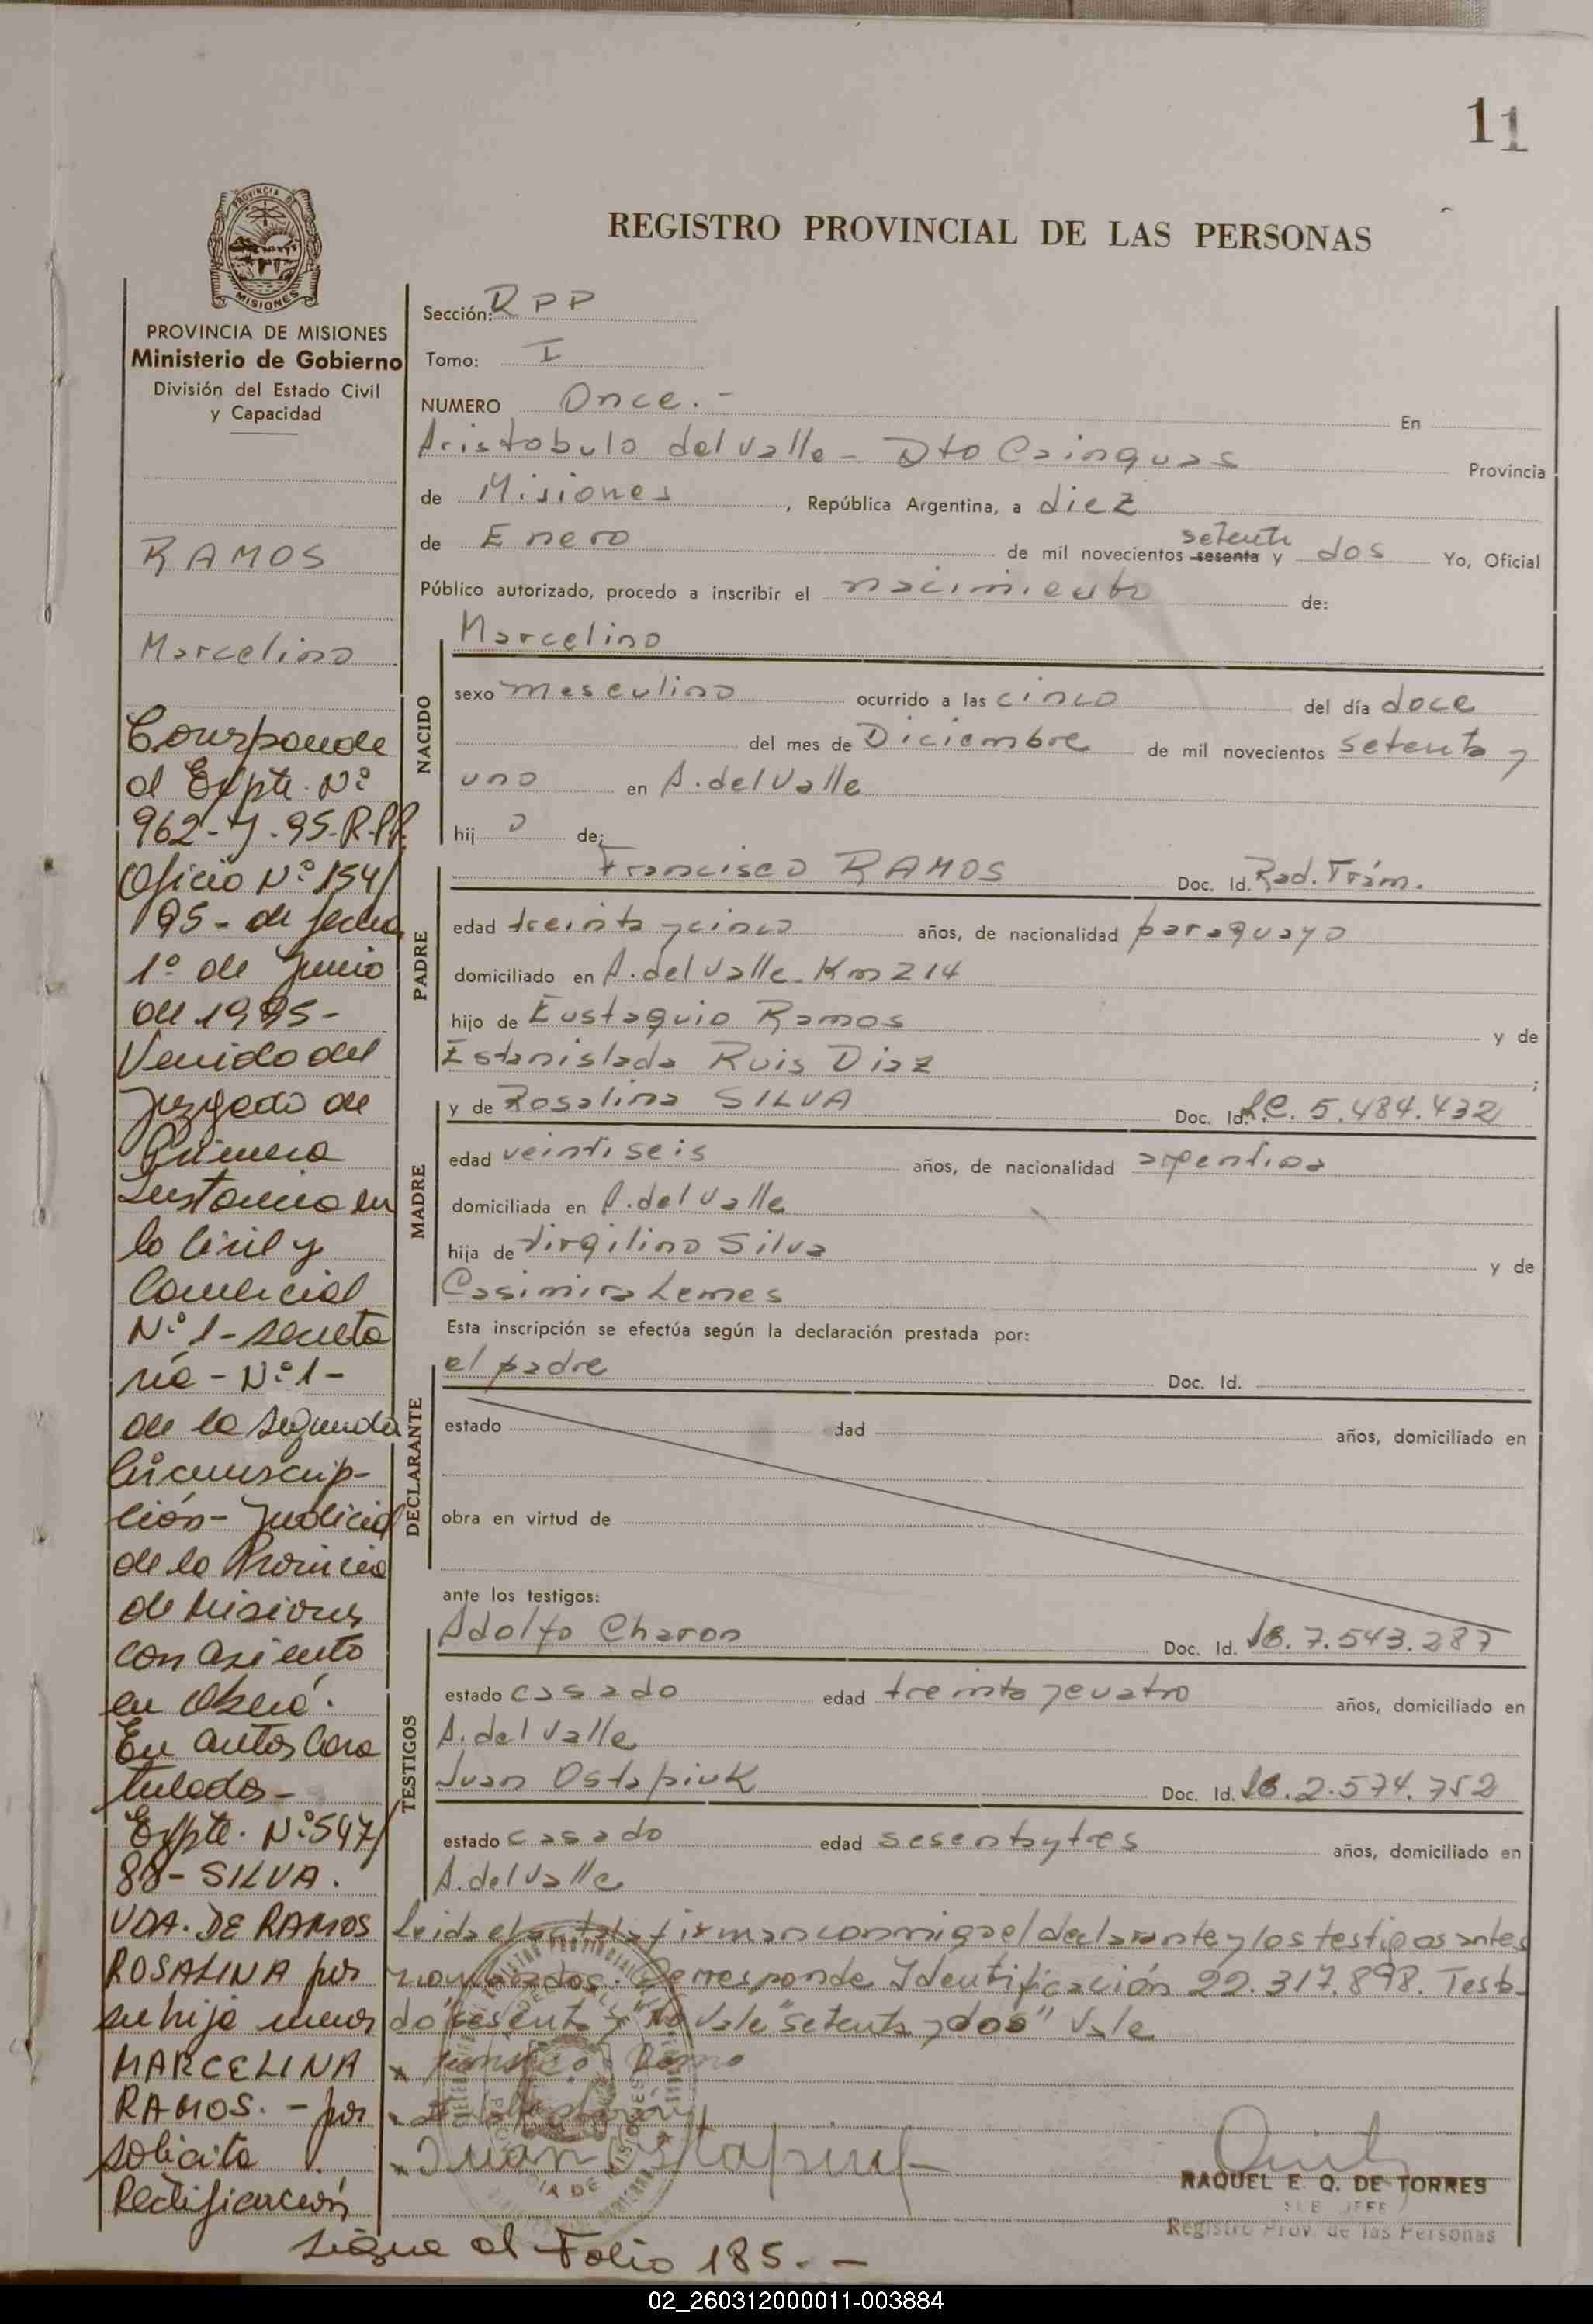 11
PROVINCIA DE
MISIONES
REGISTRO PROVINCIAL DE LAS PERSONAS
PROVINCIA DE MISIONES
Ministerio de Gobierno
División del Estado Civil
y Capacidad
RAMOS
Marcelino
Corresponde
al Expte. Nº
962-J-95-R.PP.
Oficio Nº 154/
95- de fecha
1º de Junio
de 1995-
Venido del
Juzgado de
Primera
Instancia en
lo Civil y
Comercial
Nº 1- Secreta
ría - Nº 1-
de la Segunda
Circunscrip-
ción- Judicial
de la Provincia
de Misiones
con asiento
en Oberá.
En autos Cara
tulados-
Expte. Nº 547/
88- SILVA.
VDA. DE RAMOS
ROSALINA por
su hija menor
MARCELINA
RAMOS. - por
solicita
Rectificación
Sigue al Folio 185. -
Sección: RPP
Tomo: I
NUMERO Once.- En
Aristobulo del Valle - Dto Cainguas Provincia
de Misiones, República Argentina, a diez
de Enero de mil novecientos sesenta setenta y dos Yo, Oficial
Público autorizado, procedo a inscribir el nacimiento de:
NACIDO
Marcelino
sexo masculino ocurrido a las cinco del día doce
del mes de Diciembre de mil novecientos setenta y
uno en A. del Valle
hijo de:
PADRE
Francisco RAMOS Doc. Id. Rad. Trám.
edad treinta y cinco años, de nacionalidad paraguayo
domiciliado en A. del Valle Km 214
hijo de Eustaquio Ramos y de
Estanislada Ruis Diaz;
MADRE
y de Rosalina SILVA Doc. Id. LC. 5.484.432
edad veintiseis años, de nacionalidad argentina
domiciliada en A. del Valle
hija de Virgilino Silva y de
Casimira Lemes
Esta inscripción se efectúa según la declaración prestada por:
DECLARANTE
el padre Doc. Id.
estado dad años, domiciliado en
obra en virtud de
ante los testigos:
TESTIGOS
Adolfo Charon Doc. Id. 7.543.287
estado casado edad treinta y cuatro años, domiciliado en
A. del Valle
Juan Ostapiuk Doc. Id. 2.574.752
estado casado edad sesenta y tres años, domiciliado en
A. del Valle
Leida el acta la firman conmigo el declarante y los testigos antes
nombrados. Corresponde Identificación 22.317.898. Testa-
do "sesenta y" no vale "setenta y dos" Vale
Juan Ostapiuk
RAQUEL E. Q. DE TORRES
SUB JEFE
Registro Prov. de las Personas
02_260312000011-003884